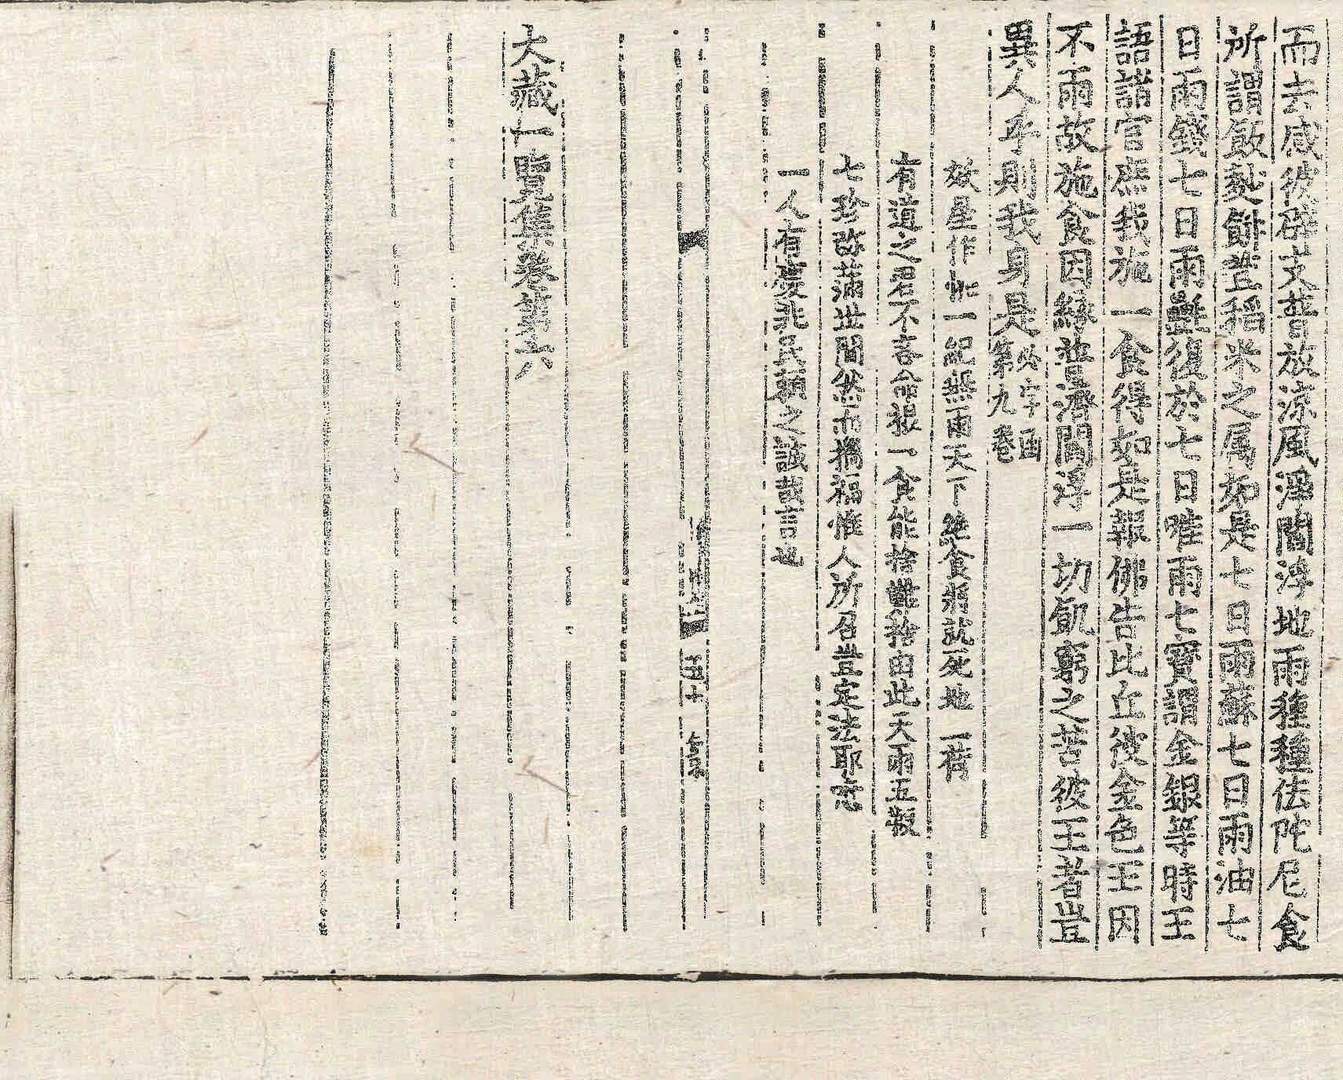 而去感彼辟支普放涼風滛閻浮地雨種種佉陀尼食
所謂飯麨餅豆稻米之属如是七日雨蘇七日雨油七
日雨錢七日雨㲲復於七日唯雨七寶謂金銀等時王
語諸官庶我施一食得如是報佛告比丘彼金色王因
不雨故施食因緣並濟閻浮一切飢窮之苦彼王者豈
異人乎則我身是
必字函
第九卷
妖星作怪一紀無雨天下絶食將就死地一
有道之君不吝命根一食能捨誰捨由此天雨五
七珍弥滿世間然而福惟人所召豈定法耶
一人有慶兆民頼之誠哉言也
五十
大藏一覽集卷第六